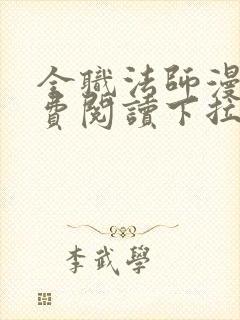 全職法師漫
費閱讀下拉
李武學